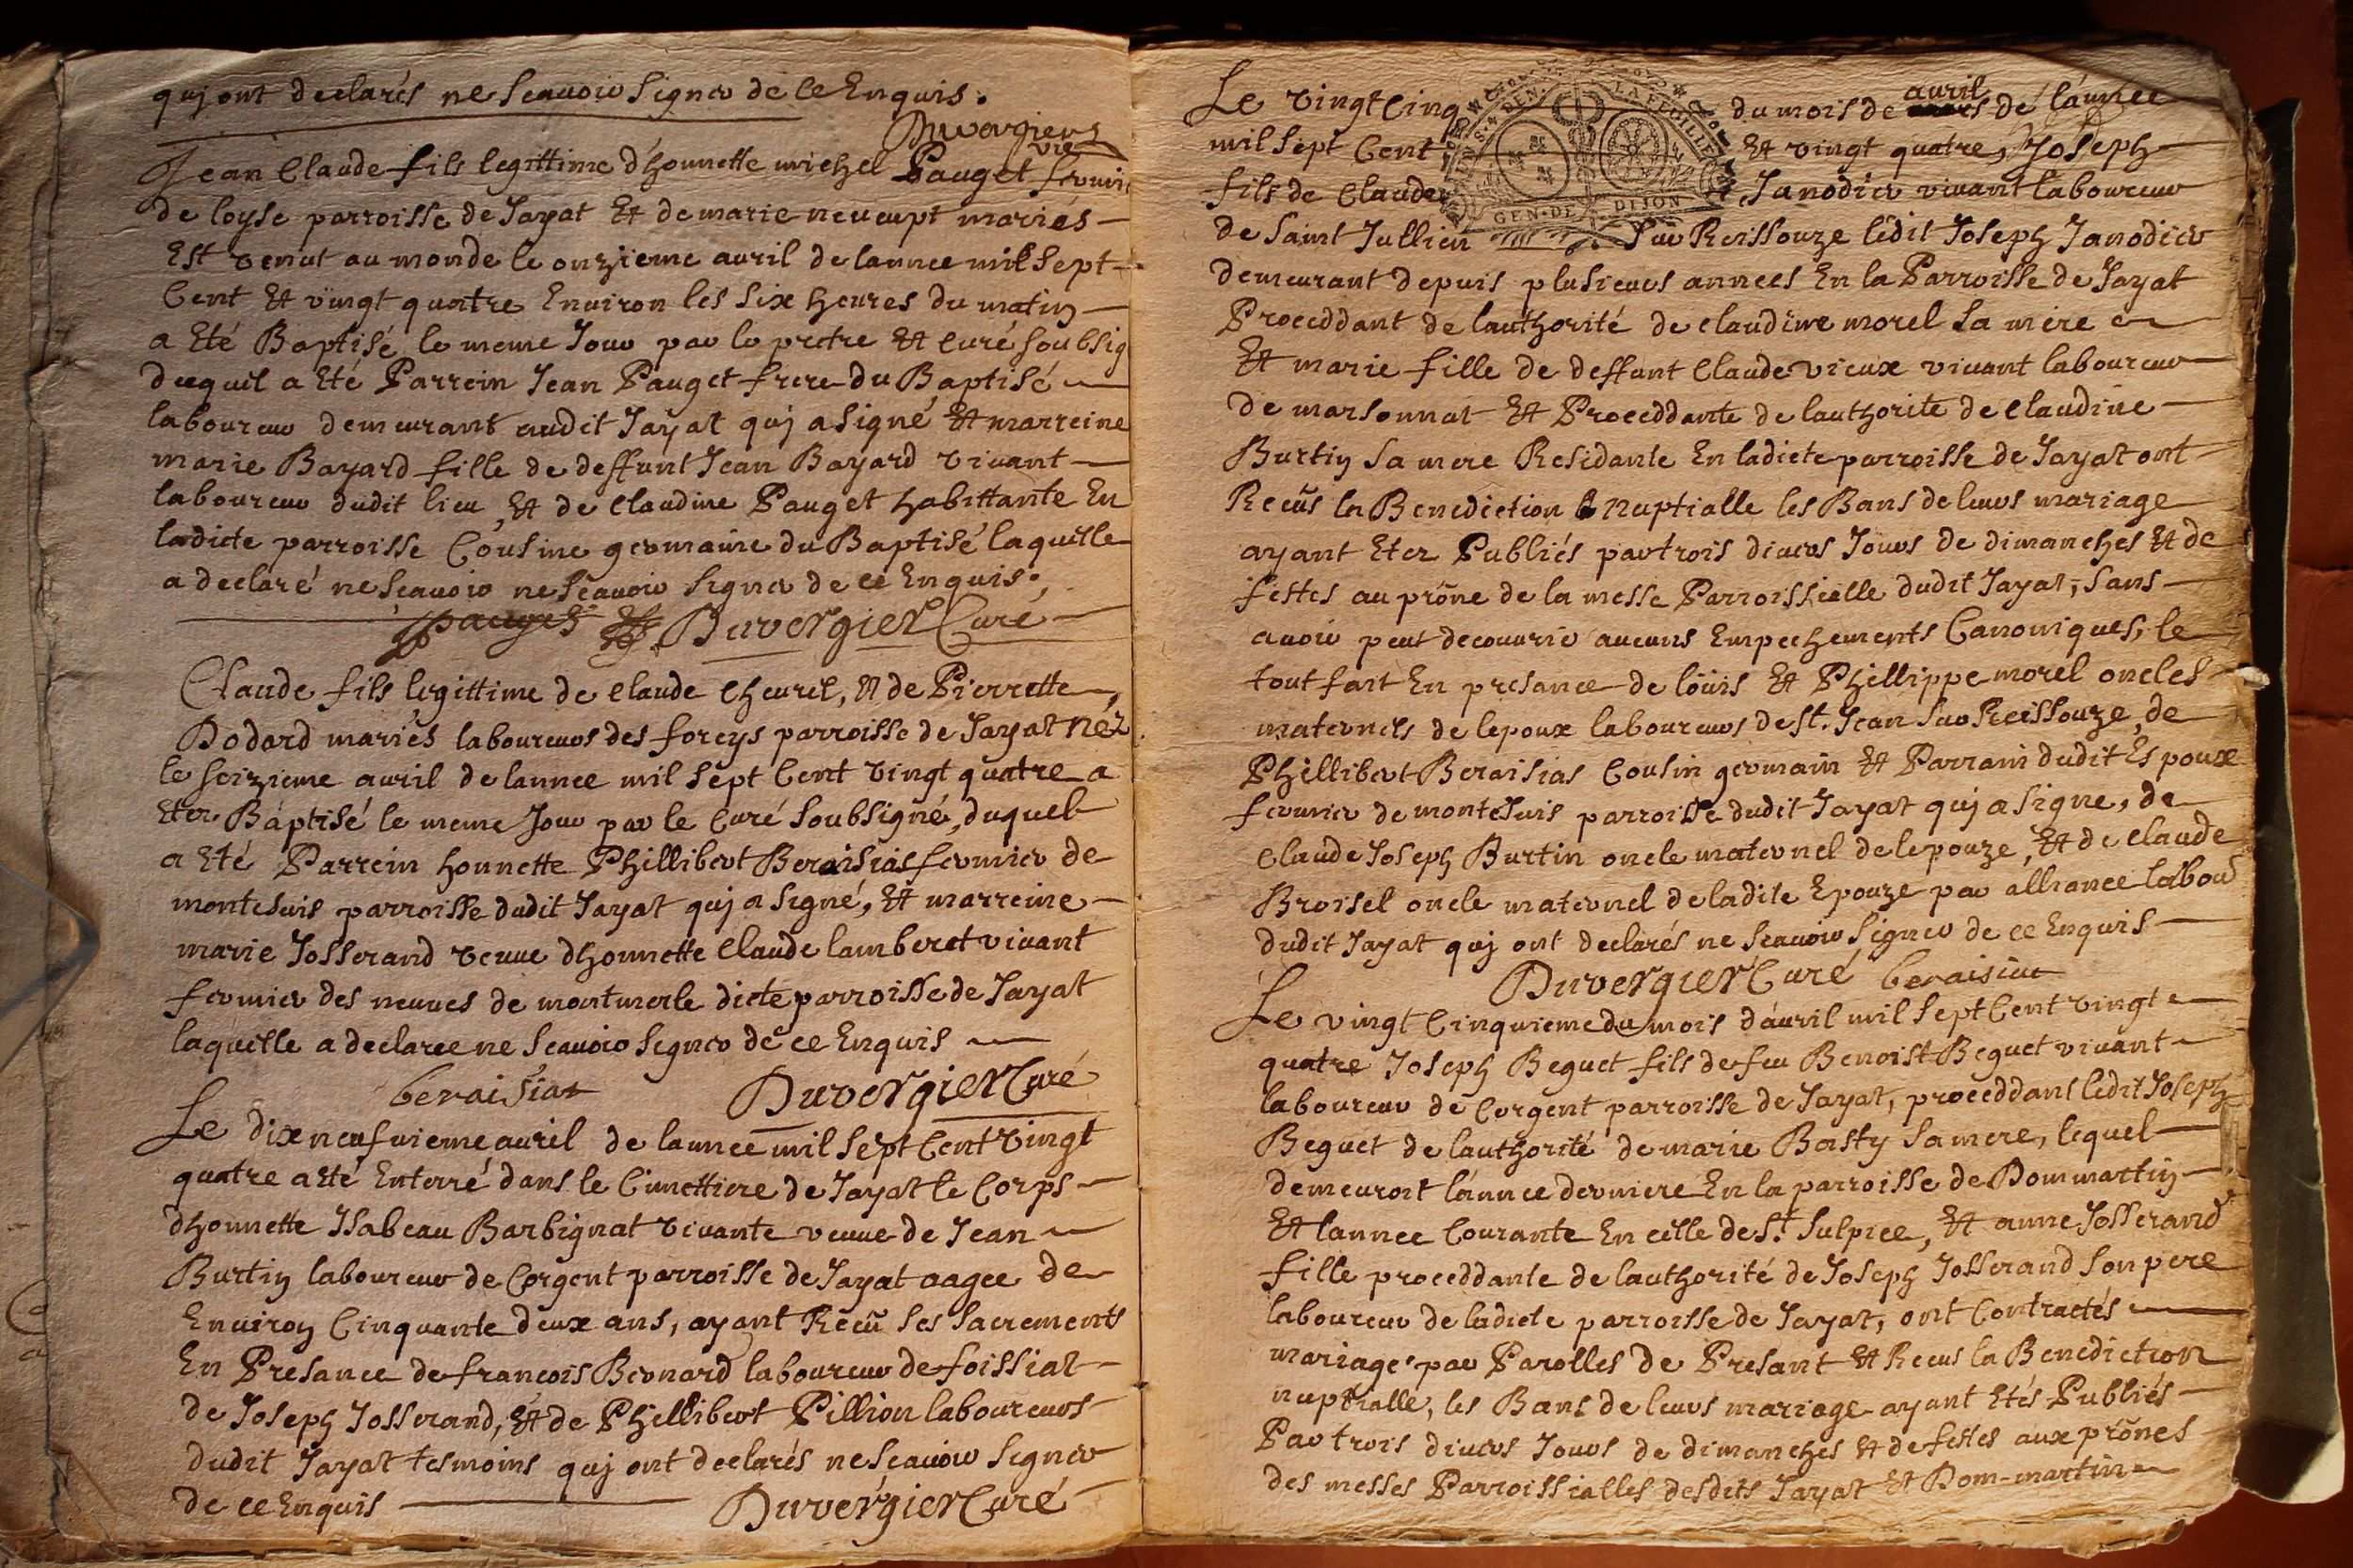 quj ont declarés ne Scauoir Signer de ce Enquis.
Duvergier
Jean Claude fils legittime d'honnette michel Pauget fermier
de loyse parroisse de Jayat Et de marie neueupt mariés
Est venut au monde le onzieme auril de lannee mil sept
Cent Et vingt quatre Enuiron les six heures du matin
a Eté Baptisé le meme Jour par le pretre Et curé soubsig
duquil a Eté Parrein Jean Pauget frere du Baptisé
laboureur demeurant audit Jayat quj a signé Et marreine
marie Bayard fille de deffunt Jean Bayard viuant
laboureur dudit lieu, Et de Claudine Pauget habittante En
ladicte parroisse Cousine germaine du Baptisé laquelle
a declaré ne Scauoir ne Scauoir signer de ce Enquis.
pauget Duvergier Curé
Claude fils legittime de Claude cheuril, & de Pierrette
Dodard mariés laboureurs des foreys parroisse de Jayat Néz
le seizieme auril de lannee mil sept Cent vingt quatre a
Eter Baptisé le meme Jour par le Curé Soubsigné, duquel
a Eté Parrein honnette Phillibert Beraisias fermier de
montesuis parroisse dudit Jayat quj a signé, Et marreine
marie Josserand veuue dhonnette Claude lamberet viuant
fermier des neuues de montmerle dicte parroisse de Jayat
laquelle a declaree ne Scauoir Signer de ce Enquis
beraisiat Duvergier Curé
Le dixneufuieme auril de lannee mil sept Cent vingt
quatre a Eté Enterré dans le Cimettiere de Jayat le Corps
dhonnette Isabeau Barbignat viuante veuue de Jean
Burtin laboureur de Corgent parroisse de Jayat aagee de
Enuiron Cinquante deux ans, ayant Recü Ses Sacrements
En Presance de francois Bernard laboureur de foissiat
de Joseph Josserand, Et de Phillibert Pillion laboureurs
dudit Jayat tesmoins quj ont declarés ne Scauoir Signer
de ce Enquis Duvergier Curé
Le vingt Cinq du mois de auril de lánnee
mil sept Cent Et vingt quatre, Joseph
fils de Claude Janodier viuant laboureur
de Saint Jullien Sur Reissouze ledit Joseph Janodier
demeurant depuis plusieurs annees En la Parroisse de Jayat
Proceddant de lauthorité de claudine morel Sa mere
Et marie fille de deffunt Claude vieux viuant laboureur
de marsonnat Et Proceddante de lauthorite de claudine
Burtin Sa mere Residante En ladicte parroisse de Jayat ont
Recüs la Benediction Nuptialle les Bans de leurs mariage
ayant Eter Publiés par trois diuers Jours de dimanches Et de
festes au prône de la messe Parroissialle dudit Jayat, Sans
auoir peut decouurir aucuns Empechements Canoniques, le
tout fait En presance de loüis Et Phillippe morel oncles
maternels de lepoux laboureurs de St. Jean Sur Reissouze, de
Phillibert Beraisias Cousin germain Et Parrain dudit Espoux
fermier de montesuis parroisse dudit Jayat quj a signe, de
Claude Joseph Burtin oncle maternel de lepouze, Et de Claude
Broisel oncle maternel de ladite Epouze par alliance labour
dudit Jayat quj ont declarés ne Scauoir Signer de ce Enquis
Duvergier Curé beraisiat
Le vingt Cinquieme du mois dáuril mil Sept Cent vingt
quatre Joseph Beguet fils de feu Benoist Beguet viuant
laboureur de Corgent parroisse de Jayat, proceddant ledit Joseph
Beguet de lauthorité de marie Basty Sa mere, lequel
demeuroit lánnee derniere En la parroisse de Dommartin
Et lannee Courante En celle de St. Sulpice, Et anne Josserand
fille proceddante de lauthorité de Joseph Josserand Son pere
laboureur de ladicte parroisse de Jayat, ont Contractés
mariage par Parolles de Presant Et Recus la Benediction
nuptialle, les Bans de leurs mariage ayant Etés Publiés
Par trois diuers Jours de dimanches Et de festes aux prônes
des messes Parroissialles desdits Jayat Et Dom-martin